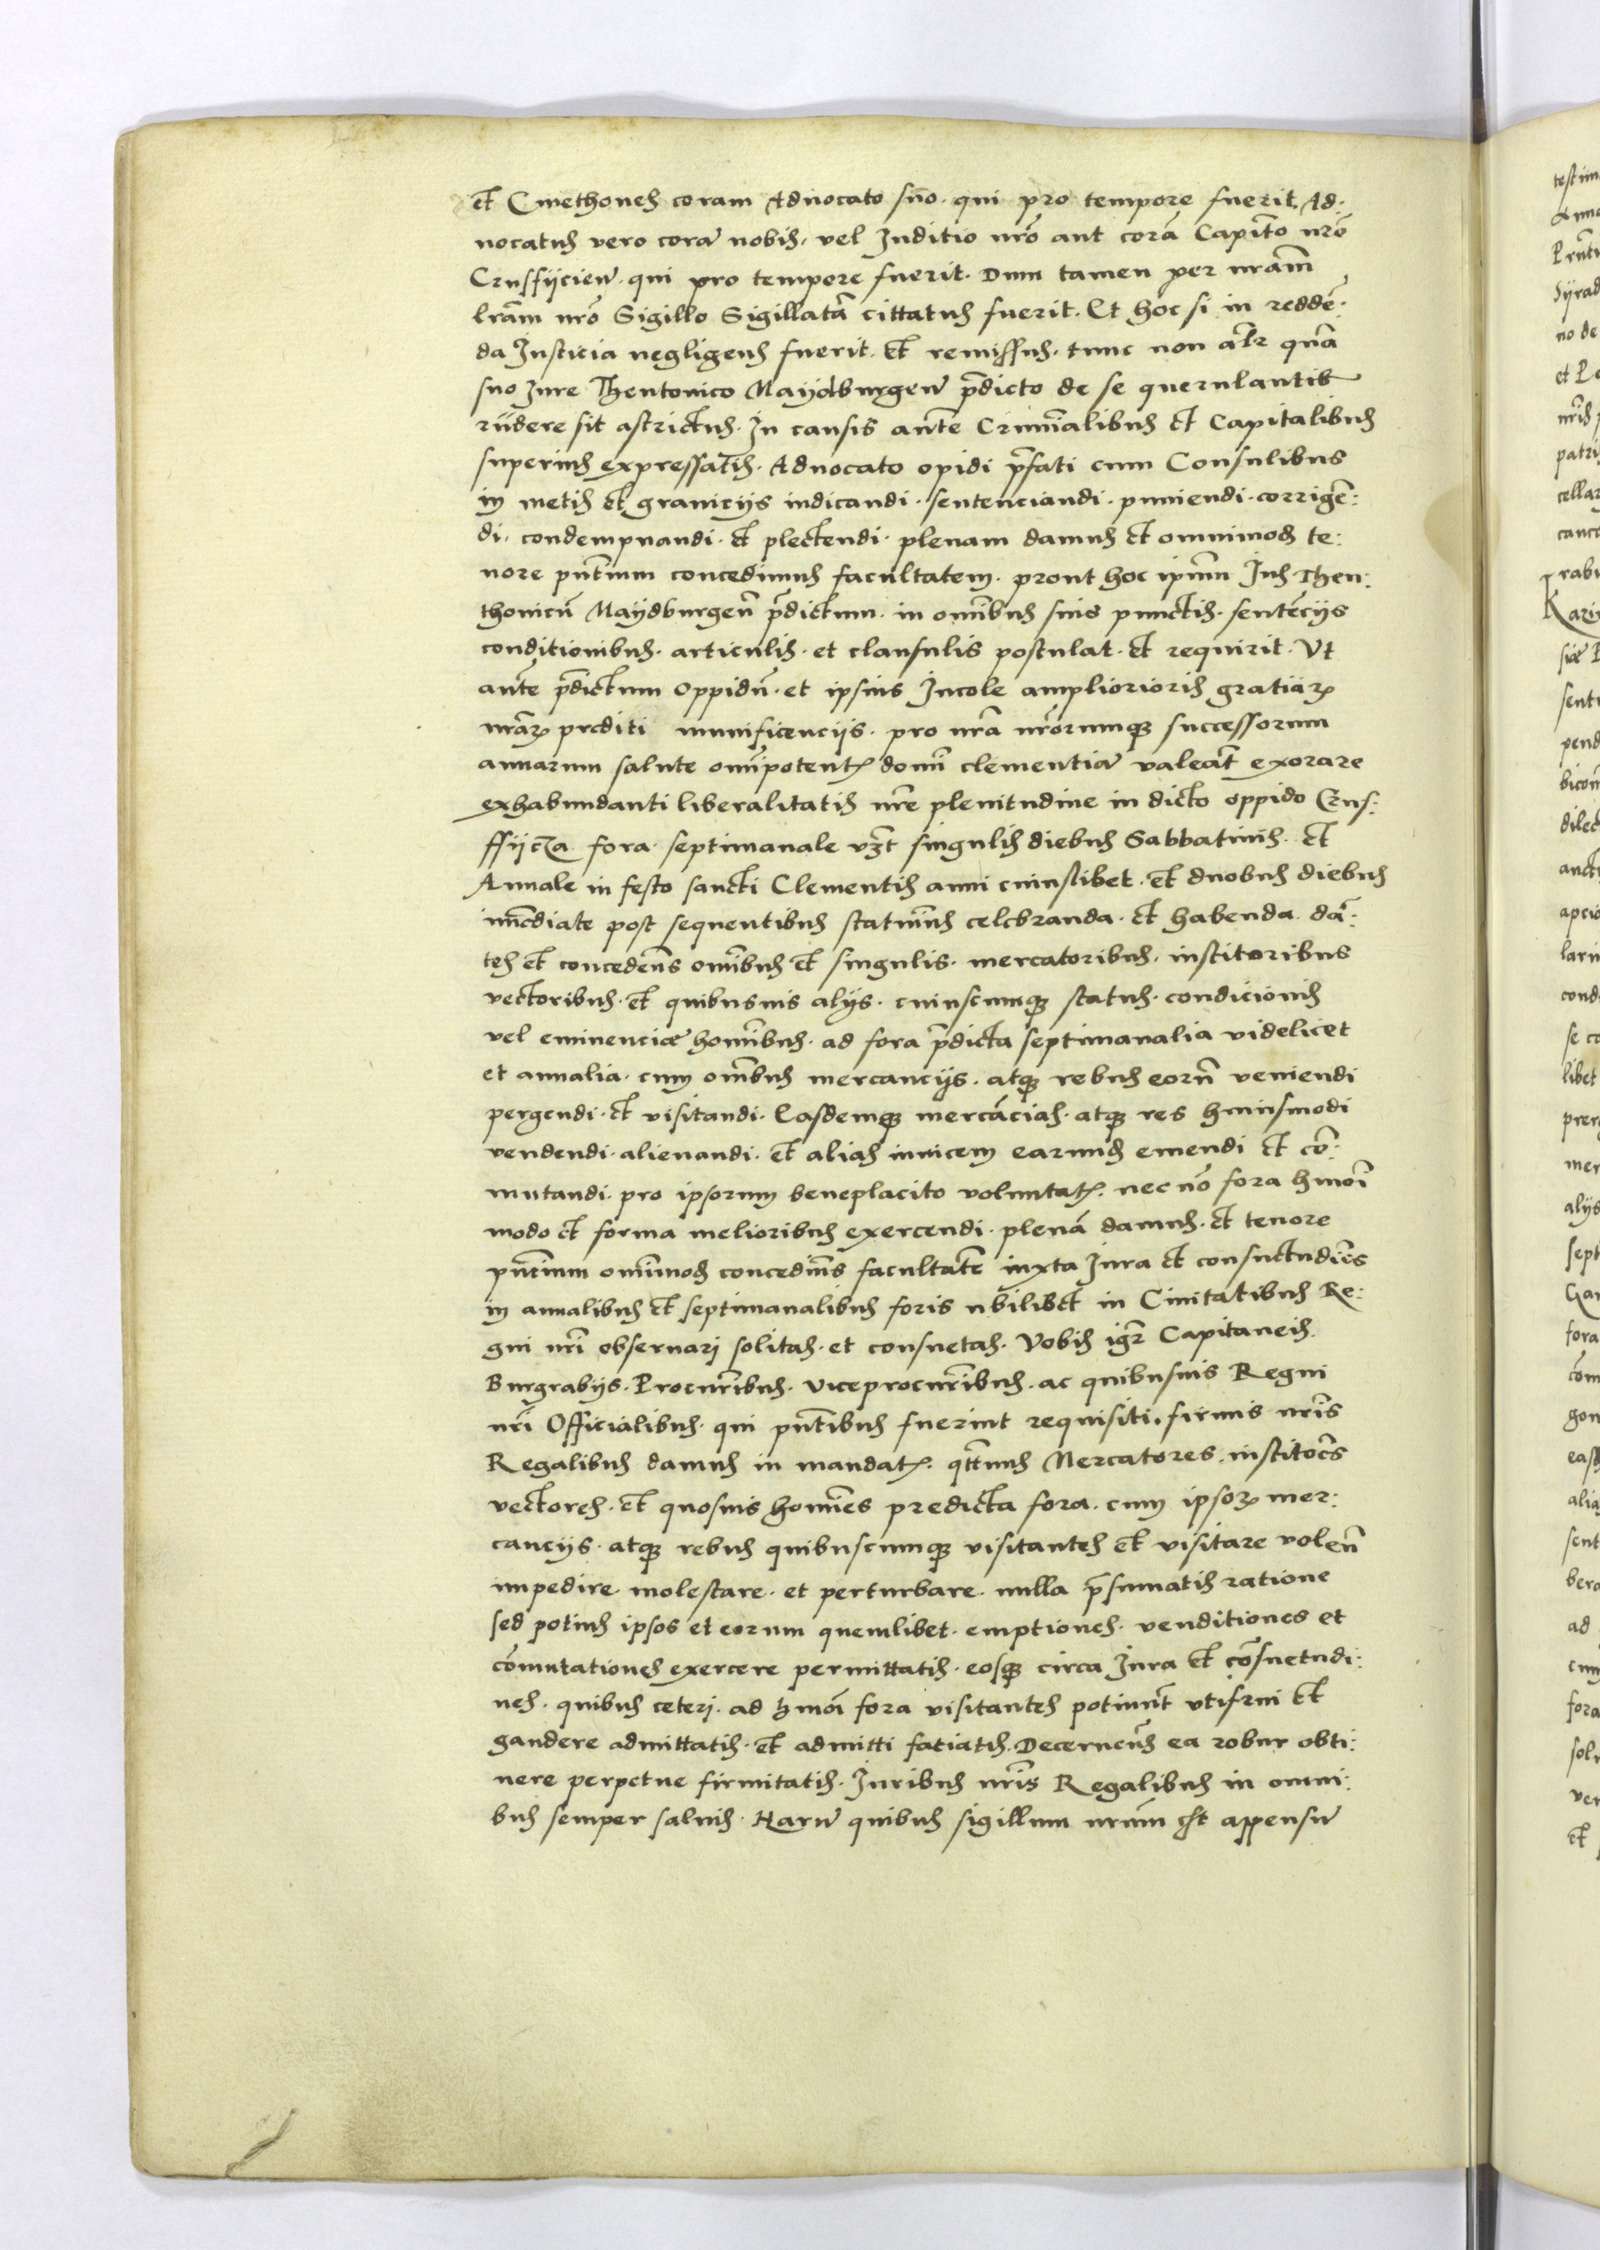 et Cmethones coram Aduocato suo. qui pro tempore fuerit. Ad:
uocatus vero corā nobis, vel Juditio nrō aut corā Capitō nrō
Crusfijcieñ. qui pro tempore fuerit. Dum tamen per nrām
lrām nrō Sigillo Sigillatā cittatus fuerit. Et hoc si in reddē:
da Justicia negligens fuerit. et remissus. tunc non alr̄ quā
suo Jure Theutonico Maydburgeñ prēdicto de se querulantib9
rūdere sit astrictus. In causis autē Criminalibus et Capitalibus
superius expressatis. Aduocato opidi prēfati cum Consulibus
in metis et granicijs iudicandi. sentenciandi. puniendi. corrigē:
di. condempnandi. et plectendi. plenam damus et omnimod te:
nore pñtium concedimus facultatem. prout hoc ipsum Jus Theu:
thonicū Maydburgeñ prēdictum. in omībus suis punctis. sentēcijs
conditionibus. articulis. et clausulis postulat. et requirit. Vt
autē prēdictum Oppidū. et ipsius Incole amplioribus gratiarꝫ
nrārꝫ prediti munificencijs. pro nrā nrōrumqꝫ successorum
animarum salute omīpotentꝭ domī clementiā valeāt exorare
exhabundanti liberalitatis nrē plenitudine in dicto oppido Crus:
ffijcza fora septimanale vꝫt singulis diebus Sabbatinis. et
Annale in festo sancti Clementis anni cuiuslibet. et duobus diebus
īmediate post sequentibus statuimus celebranda. et habenda. dā:
tes et concedeñs omībus et singulis. mercatoribus. institoribus
vectoribus. et quibusuis alijs. cuiuscumqꝫ status. condicionis
vel eminenciæ homībus. ad fora prēdicta septimanalia videlicet
et annalia. cum omībus mercancijs. atqꝫ rebus eorū veniendi
pergendi. et visitandi. Easdemqꝫ mercācias. atqꝫ res huiusmodi
vendendi. alienandi. et alias inuicem earund emendi et cō:
mutandi. pro ipsorum beneplacito voluntatꝭ. nec nō fora hmōi
modo et forma melioribus exercendi. plenā damus. et tenore
pñtium omīmod concedimus facultatē iuxta Jura et consuetudines
in annalibus et septimanalibus foris ubilibet in Ciuitatibus Re:
gni nrī obseruari solitas. et consuetas. Vobis igr̄ Capitaneis
Burgrabijs. Procurībus. viceprocurībus. ac quibusuis Regni
nrī Officialibus. qui pñtibus fuerint requisiti. firmis nrīs
Regalibus damus in mandatꝭ. qtenus Mercatores. institores
vectores. et quosuis homīes predicta fora. cum ipsorꝫ mer:
cancijs. atqꝫ rebus quibuscumqꝫ visitantes et visitare voleñ
impedire molestare. et perturbare. nulla prēsumatis ratione
sed potius ipsos et eorum quemlibet. emptiones. venditiones et
cōmutationes exercere permittatis. eosqꝫ circa Jura et cōsuetudi:
nes. quibus ceteri. ad hmōi fora visitantes potiunt vtifrui et
gaudere admittatis. et admitti fatiatis. Decerneñs ea robur obti:
nere perpetue firmitatis. Juribus nrīs Regalibus in omni:
bus semper saluis. Harū quibus sigillum nrūm est appensū